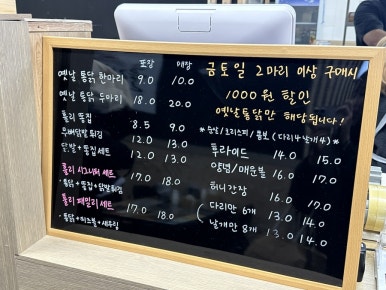 포장 매장
옛날 통닭 한마리 9.0 10.0
옛날 통닭 두마리 18.0 20.0
톨리 똥집 8.5 9.0
무뼈닭발 튀김 12.0 13.0
닭발 + 똥집 세트 12.0 13.0
톨리 시그니처 세트 17.0 18.0
· 통닭 + 똥집 + 닭발튀김
톨리 패밀리 세트 17.0 18.0
· 통닭 + 치즈볼 + 새우링
금토일 2마리 이상 구매시
1000원 할인
옛날통닭만 해당됩니다!
* 순살 / 오리스피 / 콤보 (다리4 날개4) *
후라이드 14.0 15.0
양념/매운불 16.0 17.0
허니간장 16.0 17.0
다리만 6개 13.0 14.0
날개만 8개 13.0 14.0